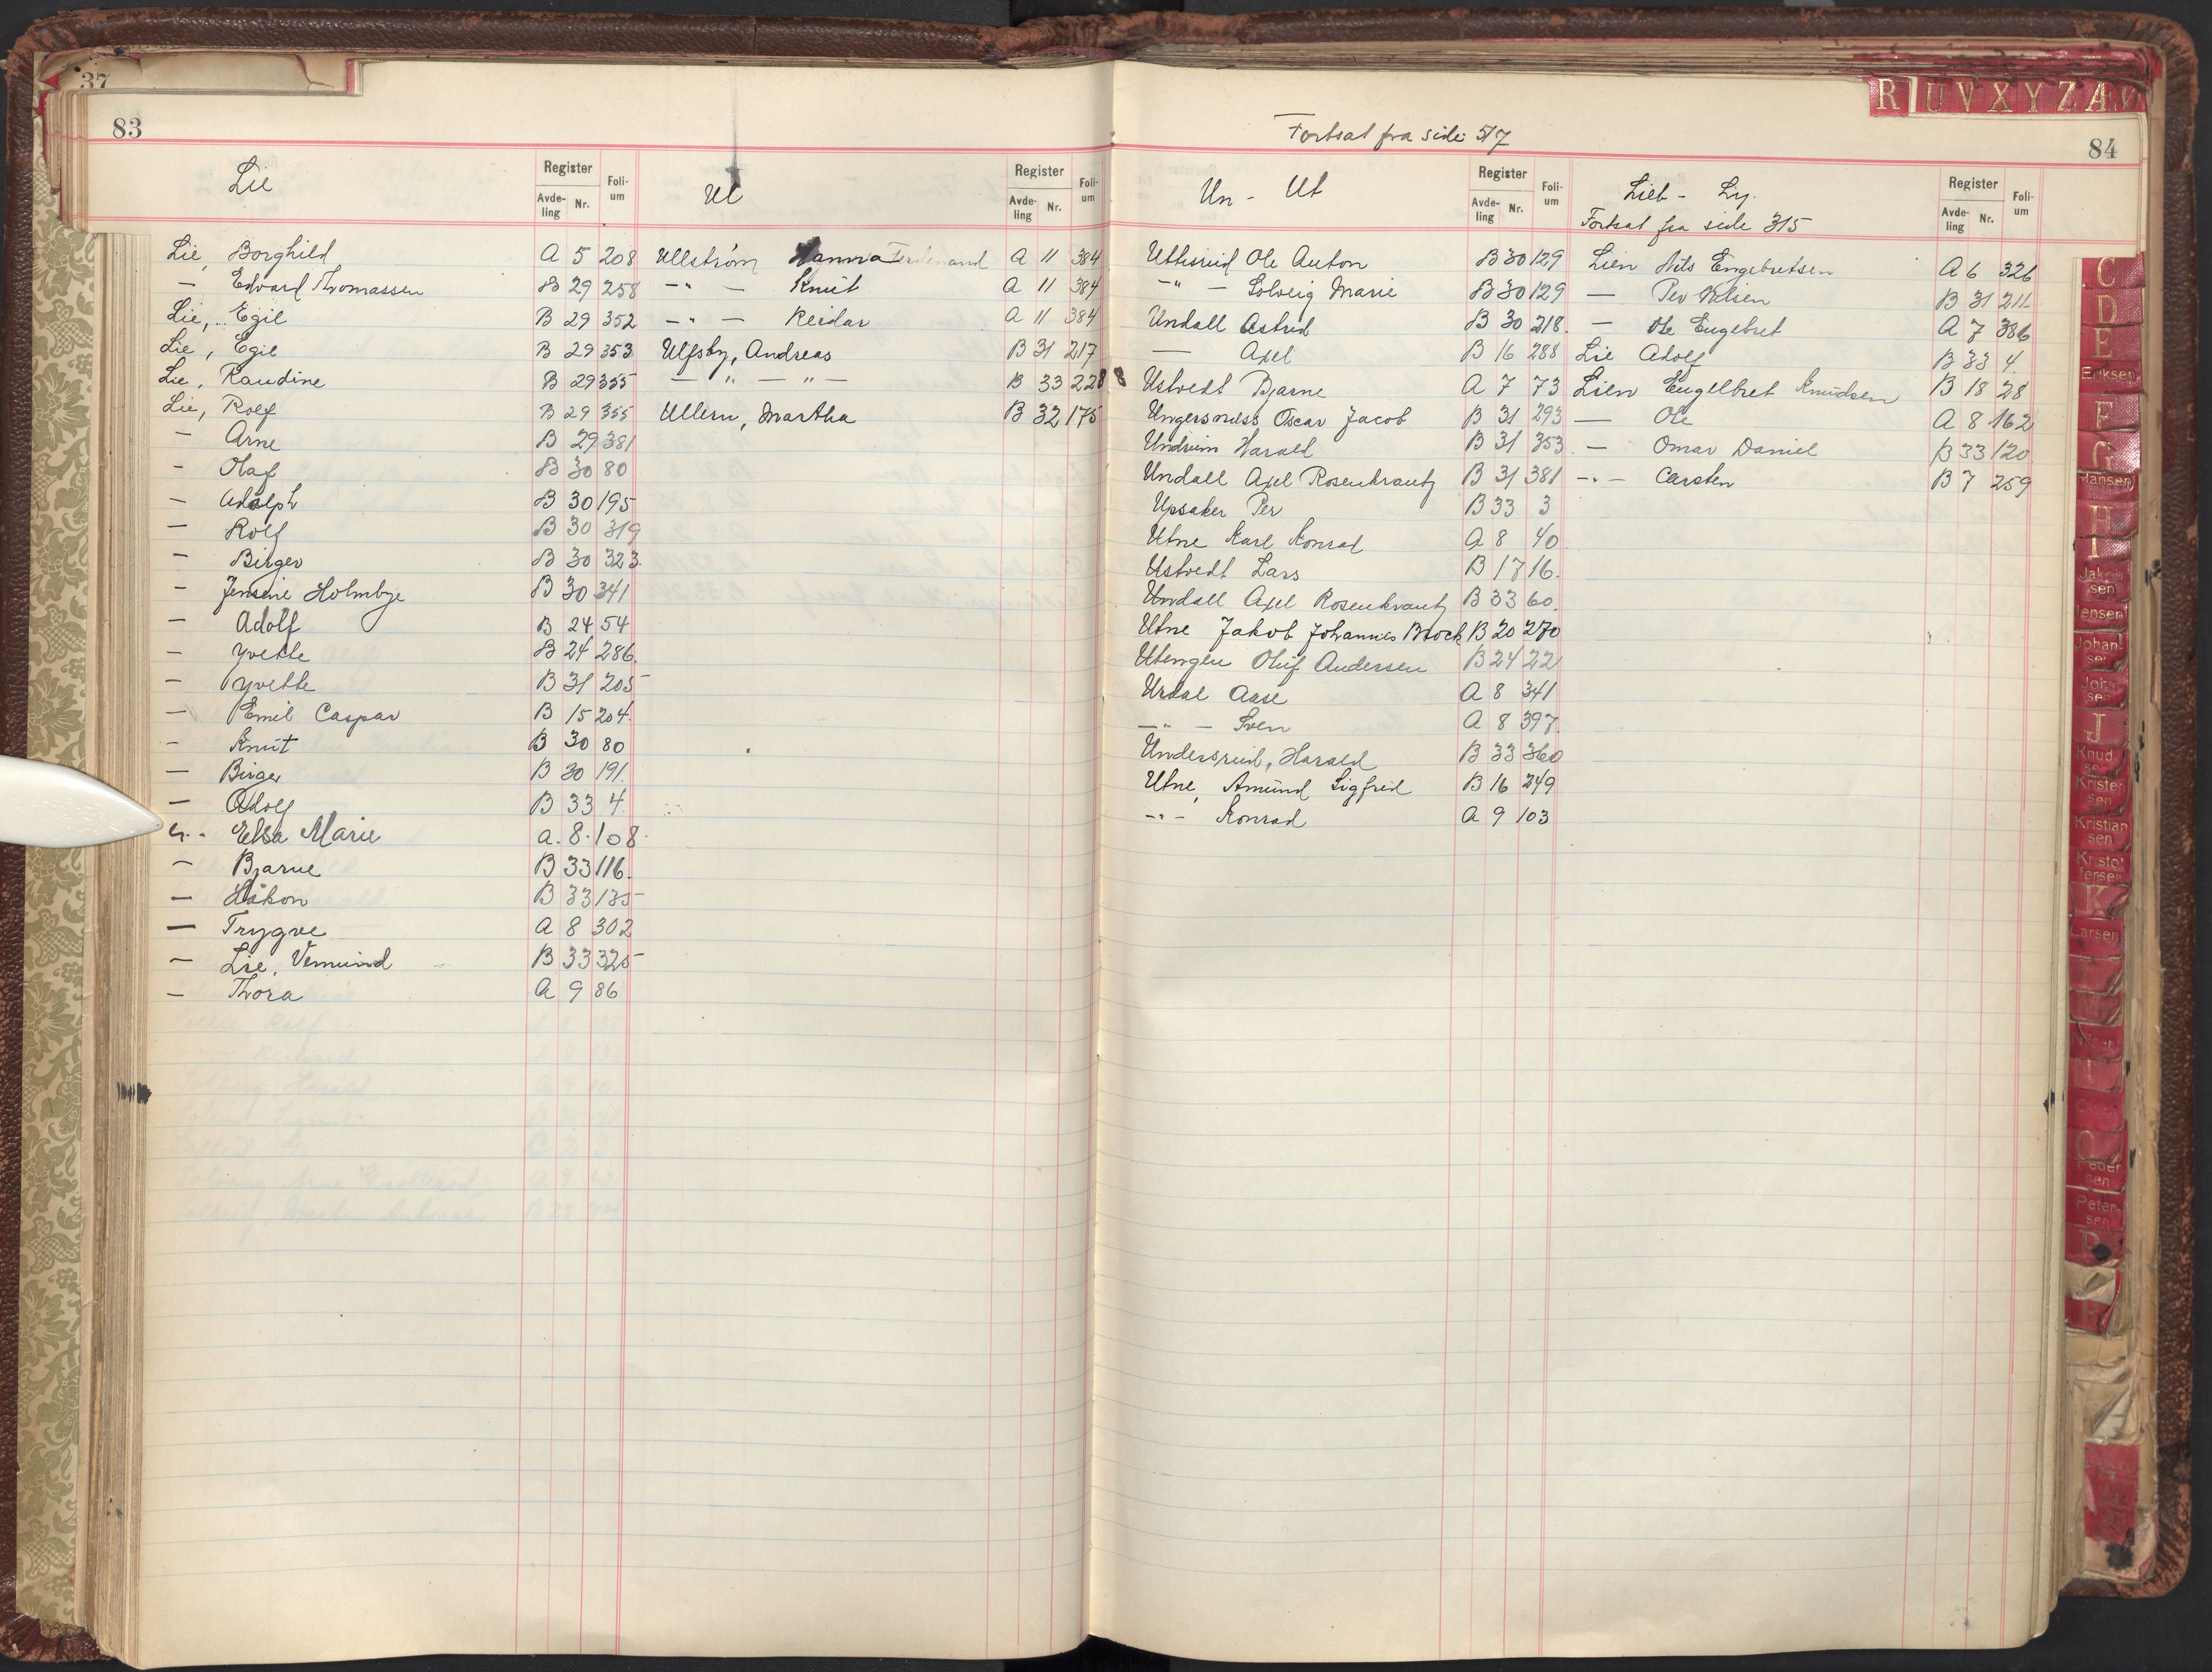 37
83
Lie
Register
Avde-
ling
Nr.
Foli-
um
Lie, Borghild A 5 208
— Edvard Thomassen B 29 258
Lie, Egil B 29 352
Lie, Egil B 29 353
Lie, Randine B 29 355
Lie, Rolf B 29 355
— Arne B 29 381
— Olaf B 30 80
— Adolph B 30 195
— Rolf B 30 319
— Birger B 30 323
— Jensine Holmbye B 30 341
— Adolf B 24 54
— Yvette B 24 286
— Yvette B 31 205
— Emil Caspar B 15 204
— Knut B 30 80
— Birger B 30 191
— Adolf B 33 4
— " — Elsa Marie A. 8. 108
— Bjarne B 33 116
— Håkon B 33 135
— Trygve A 8 302
— Lie, Vemund B 33 325
— Thora A 9 86
Ul
Register
Avde-
ling
Nr.
Foli-
um
Ullstrøm Hanna Ferdinand A 11 384
— " — Knut A 11 384
— " — Reidar A 11 384
Ulfsby, Andreas B 31 217
— " — " — B 33 228
Ullern, Martha B 32 175
Fortsat fra side 517
84
Un - Ut
Register
Avde-
ling
Nr.
Foli-
um
Uttisrud Ole Anton B 30 129
— " — Solveig Marie B 30 129
Undall Astrid B 30 218
— Axel B 16 288
Ustvedt Bjarne A 7 73
Ungersness Oscar Jacob B 31 293
Undrum Harald B 31 353
Undall Axel Rosenkrantz B 31 381
Upsaker Per B 33 3
Utne Karl Konrad A 8 40
Ustvedt Lars B 17 16
Undall Axel Rosenkrantz B 33 60
Utne Jakob Johannes Brock B 20 270
Utengen Oluf Andersen B 24 22
Urdal Aase A 8 341
— " — Sven A 8 397
Undersrud, Harald B 33 360
Utne, Amund Sigfrid B 16 249
— " — Konrad A 9 103
Lieb - Ly.
Fortsat fra side 315
Register
Avde-
ling
Nr.
Foli-
um
Lien Nils Engebretsen A 6 326
— Per Nilsen B 31 211
— Ole Engebret A 7 386
Lie Adolf B 33 4
Lien Engelbret Knudsen B 18 28
— Ole A 8 162
— Omar Daniel B 33 120
— " — Carsten B 7 259
R U V X Y Z Æ Ø
C
D
E
Eriksen
F
G
Hansen
H
I
Jakob
sen
Jensen
Johan-
sen
Joh
sen
J
Knud
se
Krister
sen
Kristian
sen
Kristof
fersen
K
Larsen
O
Peder
sen
Peter-
sen
P